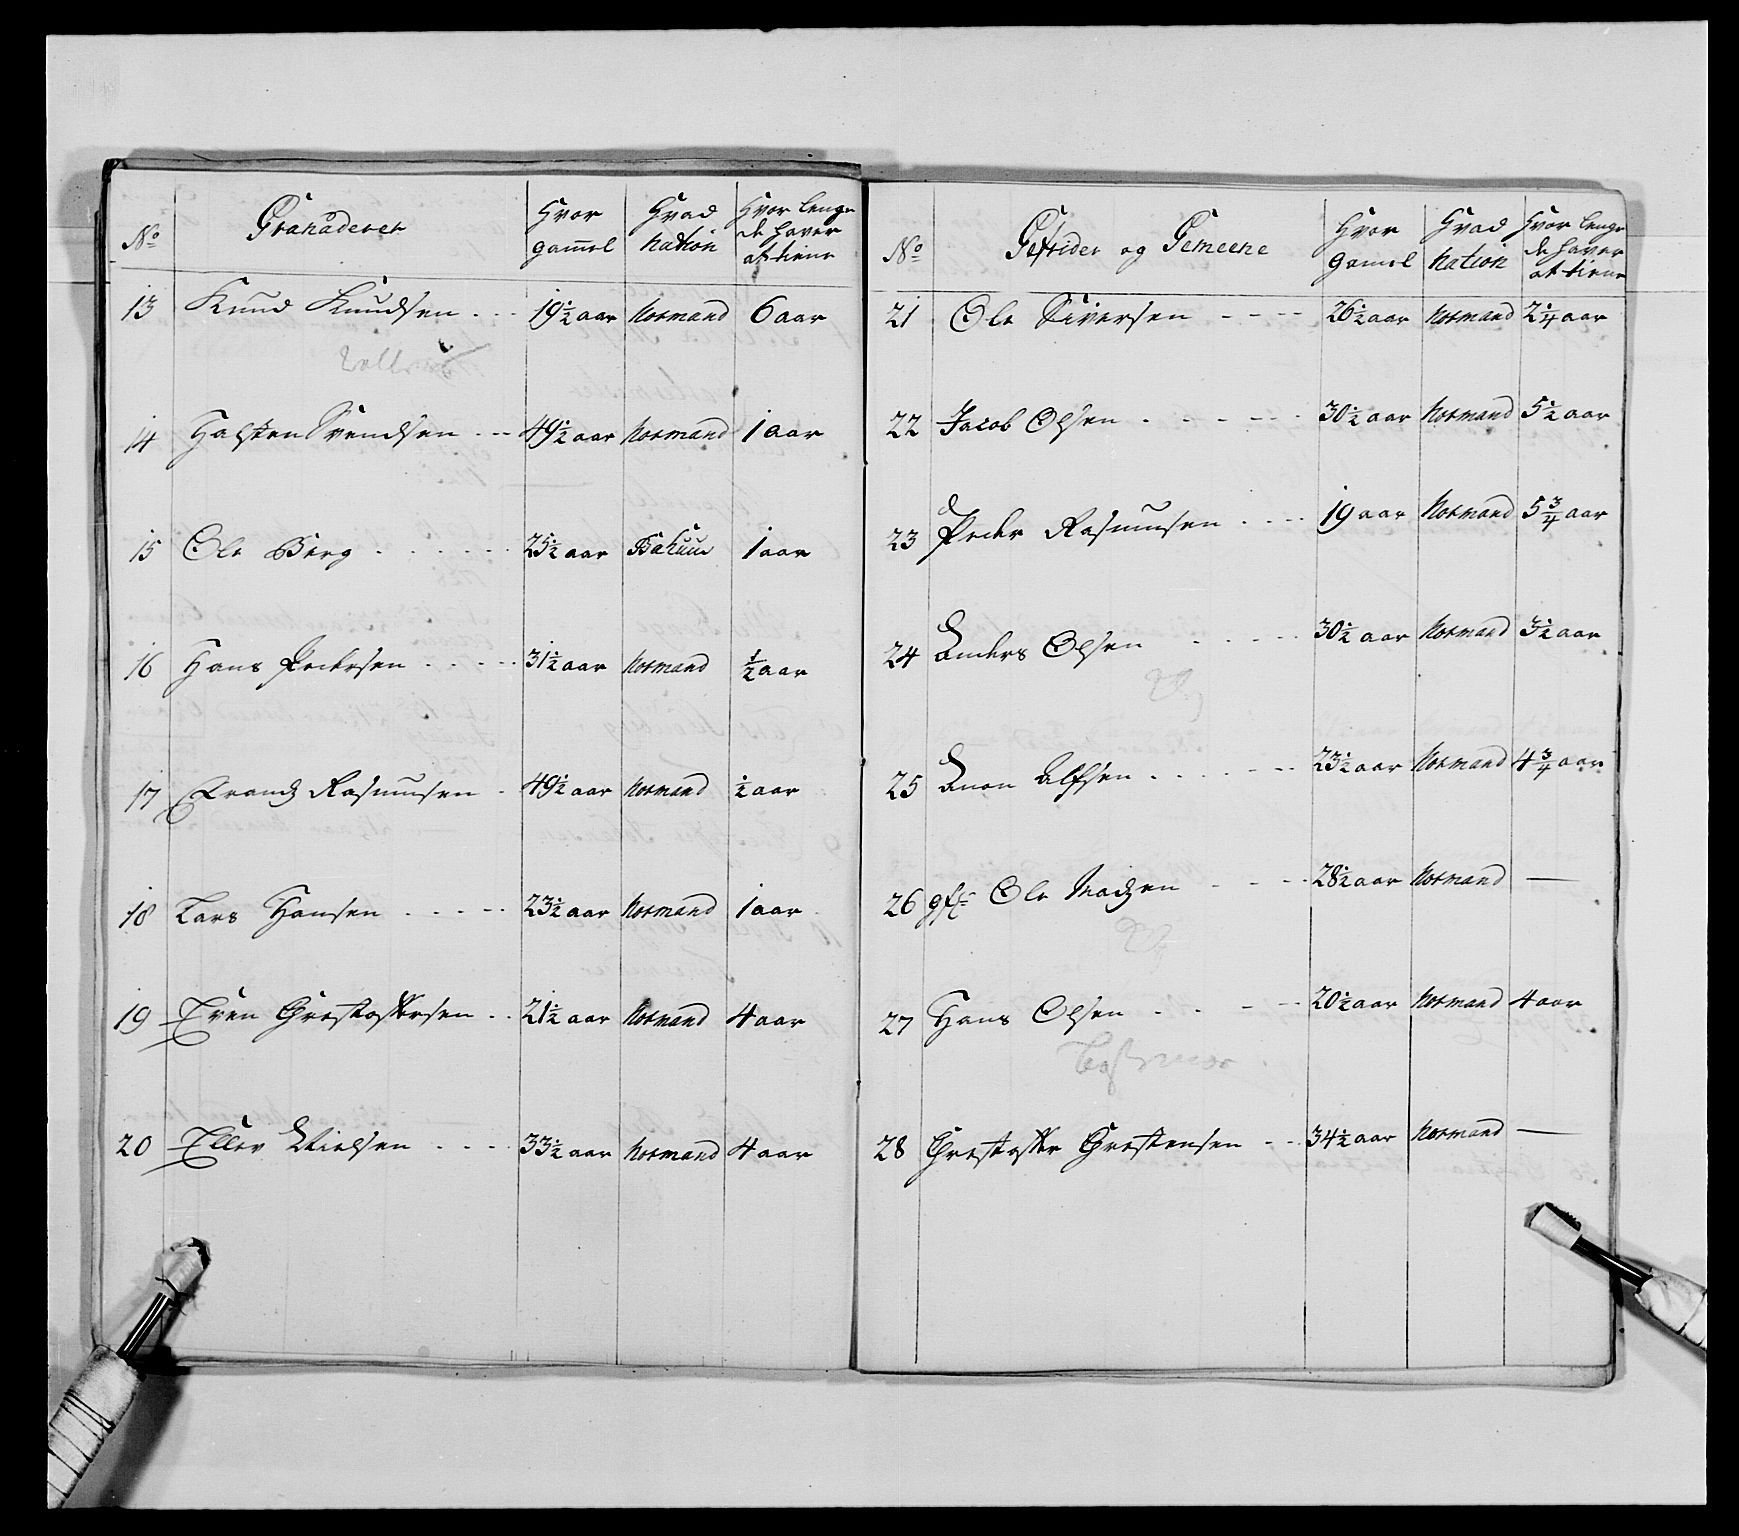 No Granaderer Hvor gammel Hvad nation Hvor lenge de haver at tiene
13 Knud Knudsen - - - 19½ aar Normand 6 aar
14 Halsten Svendsen - - - 49½ aar Normand 1 aar
15 Ole Berg - - - - - - 25½ aar 1 aar
16 Hans Pedersen - - - - - 31½ aar Normand ½ aar
17 Frandz Rasmusen - 49½ aar Normand ½ aar
18 Lars Hansen - - - - - 23½ aar Normand 1 aar
19 Even - - 21½ aar Normand 4 aar
20 Eller Nielsen - - - - 33½ aar Normand 4 aar
No Gefrider og Gemeene Hvor gamel Hvad nation Hvor lenge de haver at tiene
21 Ole Siversen - - - - 26½ aar Normand 2¼ aar
22 Jacob Olsen - - - - - - 30½ aar Normand 5½ aar
23 Peder Rasmusen - - - - 19 aar Normand 5¾ aar
24 Anders Olsen - - - - - 30½ aar Normand 3½ aar
25 Alfsen - - - - - - 23½ aar Normand 4¾ aar
26 gfr Ole Madzen - - - - 28½ aar Normand —
27 Hans Olsen - - - - - 20½ aar Normand 4 aar
28 Chrestensen - - - 34½ aar Normand —